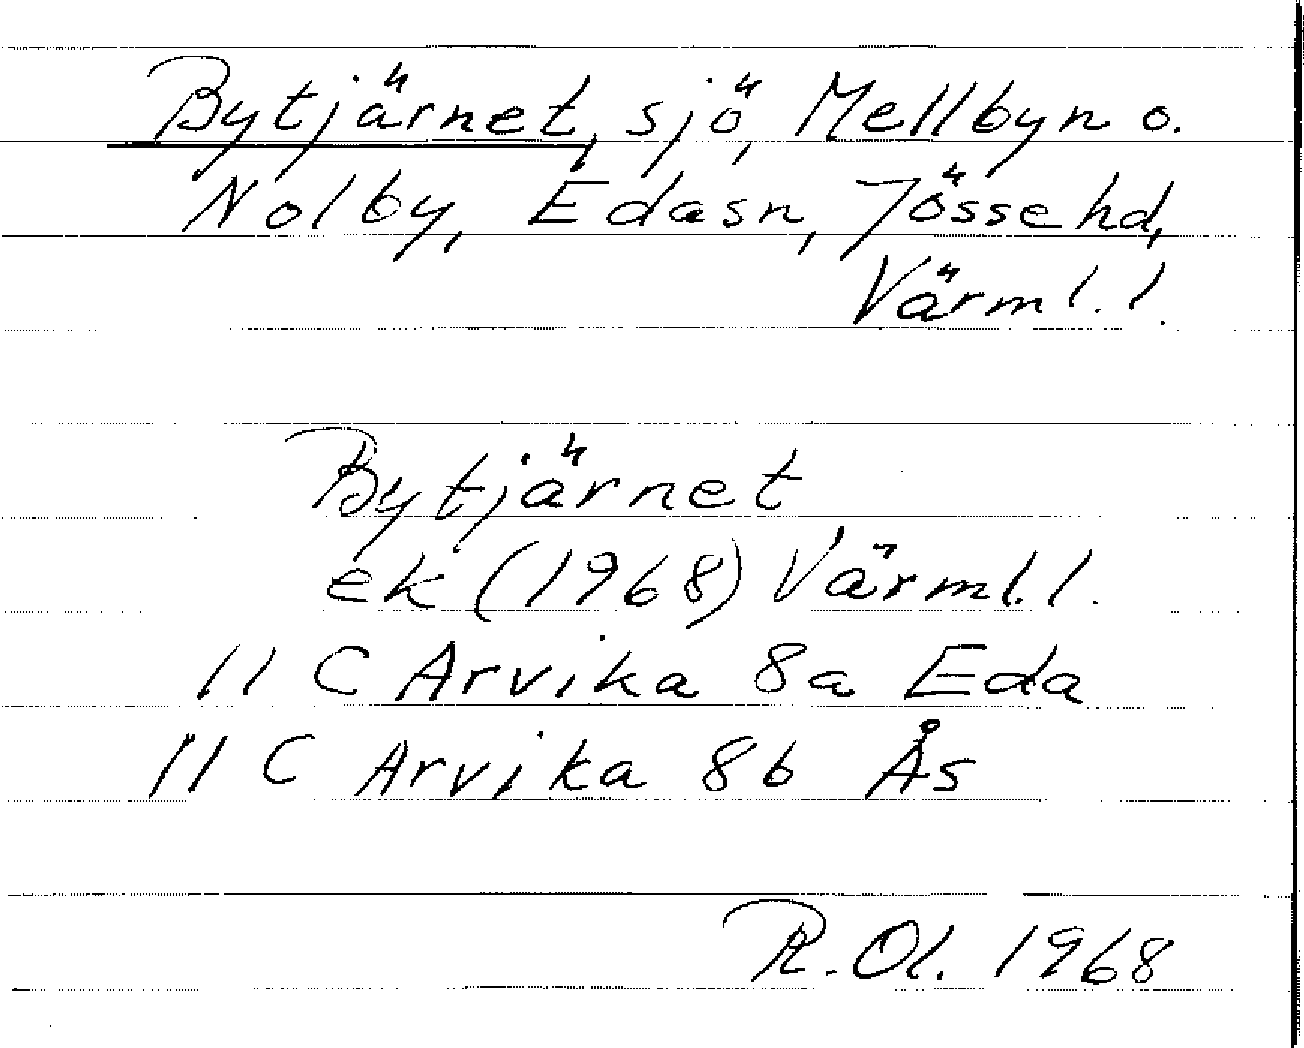 Bytjärnet, sjö, Mellbyn o.
Nolby, Edasn, Jösse hd,
Värml. l.
Bytjärnet
ek (1968) Värml. l.
11 C Arvika 8a Eda
11 C Arvika 8b Ås
R. Ol. 1968